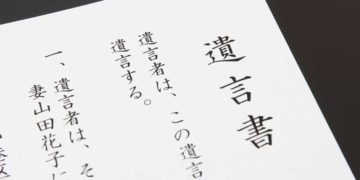 遺言書
遺言者は、この遺言
遺言する。
一、遺言者は、そ
妻山田花子に
港区